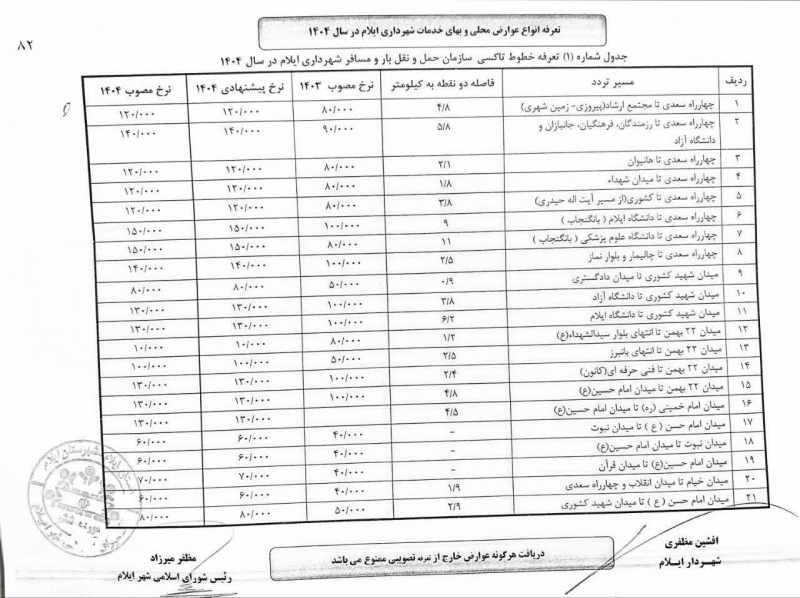 ۸۲
تعرفه انواع عوارض محلی و بهای خدمات شهرداری ایلام در سال ۱۴۰۴
جدول شماره (۱) تعرفه خطوط تاکسی سازمان حمل و نقل بار و مسافر شهرداری ایلام در سال ۱۴۰۴
ردیف مسیر تردد فاصله دو نقطه به کیلومتر نرخ مصوب ۱۴۰۳ نرخ پیشنهادی ۱۴۰۴ نرخ مصوب ۱۴۰۴
۱ چهارراه سعدی تا مجتمع ارشاد(پیروزی- زمین شهری) ۴/۸ ۸۰/۰۰۰ ۱۲۰/۰۰۰ ۱۲۰/۰۰۰
۲ چهارراه سعدی تا رزمندگان، فرهنگیان، جانبازان و دانشگاه آزاد ۵/۸ ۹۰/۰۰۰ ۱۴۰/۰۰۰ ۱۴۰/۰۰۰
۳ چهارراه سعدی تا هانیوان ۲/۱ ۸۰/۰۰۰ ۱۲۰/۰۰۰ ۱۲۰/۰۰۰
۴ چهارراه سعدی تا میدان شهداء ۱/۸ ۸۰/۰۰۰ ۱۲۰/۰۰۰ ۱۲۰/۰۰۰
۵ چهارراه سعدی تا کشوری(از مسیر آیت اله حیدری) ۳/۸ ۸۰/۰۰۰ ۱۲۰/۰۰۰ ۱۲۰/۰۰۰
۶ چهارراه سعدی تا دانشگاه ایلام ( بانگنجاب ) ۹ ۱۰۰/۰۰۰ ۱۵۰/۰۰۰ ۱۵۰/۰۰۰
۷ چهارراه سعدی تا دانشگاه علوم پزشکی ( بانگنجاب ) ۱۱ ۸۰/۰۰۰ ۱۵۰/۰۰۰ ۱۵۰/۰۰۰
۸ چهارراه سعدی تا چالیمار و بلوار نماز ۲/۵ ۱۰۰/۰۰۰ ۱۴۰/۰۰۰ ۱۴۰/۰۰۰
۹ میدان شهید کشوری تا میدان دادگستری ۰/۹ ۵۰/۰۰۰ ۸۰/۰۰۰ ۸۰/۰۰۰
۱۰ میدان شهید کشوری تا دانشگاه آزاد ۳/۸ ۱۰۰/۰۰۰ ۱۳۰/۰۰۰ ۱۳۰/۰۰۰
۱۱ میدان شهید کشوری تا دانشگاه ایلام ۶/۲ ۱۰۰/۰۰۰ ۱۳۰/۰۰۰ ۱۳۰/۰۰۰
۱۲ میدان ۲۲ بهمن تا انتهای بلوار سیدالشهداء(ع) ۱/۲ ۸۰/۰۰۰ ۱۰/۰۰۰ ۱۰/۰۰۰
۱۳ میدان ۲۲ بهمن تا انتهای بانبرز ۲/۵ ۵۰/۰۰۰ ۱۰۰/۰۰۰ ۱۰۰/۰۰۰
۱۴ میدان ۲۲ بهمن تا فنی حرفه ای(کانون) ۲/۴ ۱۰۰/۰۰۰ ۱۳۰/۰۰۰ ۱۳۰/۰۰۰
۱۵ میدان ۲۲ بهمن تا میدان امام حسین(ع) ۴/۸ ۱۰۰/۰۰۰ ۱۳۰/۰۰۰ ۱۳۰/۰۰۰
۱۶ میدان امام خمینی (ره) تا میدان امام حسین(ع) ۴/۵ ۱۳۰/۰۰۰ ۱۳۰/۰۰۰
۱۷ میدان امام حسن ( ع ) تا میدان نبوت - ۴۰/۰۰۰ ۶۰/۰۰۰ ۶۰/۰۰۰
۱۸ میدان نبوت تا میدان امام حسین(ع) - ۴۰/۰۰۰ ۶۰/۰۰۰ ۶۰/۰۰۰
۱۹ میدان امام حسین(ع) تا میدان قرآن - ۴۰/۰۰۰ ۷۰/۰۰۰ ۷۰/۰۰۰
۲۰ میدان خیام تا میدان انقلاب و چهارراه سعدی ۱/۹ ۴۰/۰۰۰ ۶۰/۰۰۰ ۶۰/۰۰۰
۲۱ میدان امام حسن ( ع ) تا میدان شهید کشوری ۲/۹ ۵۰/۰۰۰ ۸۰/۰۰۰ ۸۰/۰۰۰
افشین مظفری
شهردار ایلام
دریافت هرگونه عوارض خارج از تعرفه تصویبی ممنوع می باشد
مظفر میرزاد
رئیس شورای اسلامی شهر ایلام